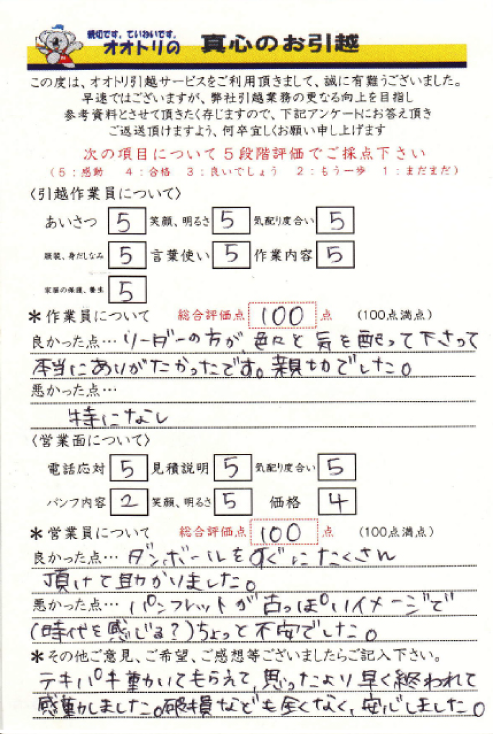 親切です。ていねいです。
オオトリの 真心のお引越
この度は、オオトリ引越サービスをご利用頂きまして、誠に有難うございました。
早速ではございますが、弊社引越業務の更なる向上を目指し
参考資料とさせて頂きたく存じますので、下記アンケートにお答え頂き
ご返送頂けますよう、何卒宜しくお願い申し上げます
次の項目について5段階評価でご採点下さい
(5:感動 4:合格 3:良いでしょう 2:もう一歩 1:まだまだ)
〈引越作業員について〉
あいさつ 5 笑顔、明るさ 5 気配り度合い 5
服装、身だしなみ 5 言葉使い 5 作業内容 5
家屋の保護、養生 5
＊作業員について 総合評価点 100 点 (100点満点)
良かった点… リーダーの方が、色々と気を配って下さって
本当にありがたかったです。親切でした。
悪かった点…
特になし
〈営業面について〉
電話応対 5 見積説明 5 気配り度合い 5
パンフ内容 2 笑顔、明るさ 5 価格 4
＊営業員について 総合評価点 100 点 (100点満点)
良かった点… ダンボールをすぐにたくさん
頂けて助かりました。
悪かった点… パンフレットが古っぽいイメージで
(時代を感じる?)ちょっと不安でした。
＊その他ご意見、ご希望、ご感想等ございましたらご記入下さい。
テキパキ動いてもらえて、思ったより早く終われて
感動しました。破損なども全くなく、安心しました。